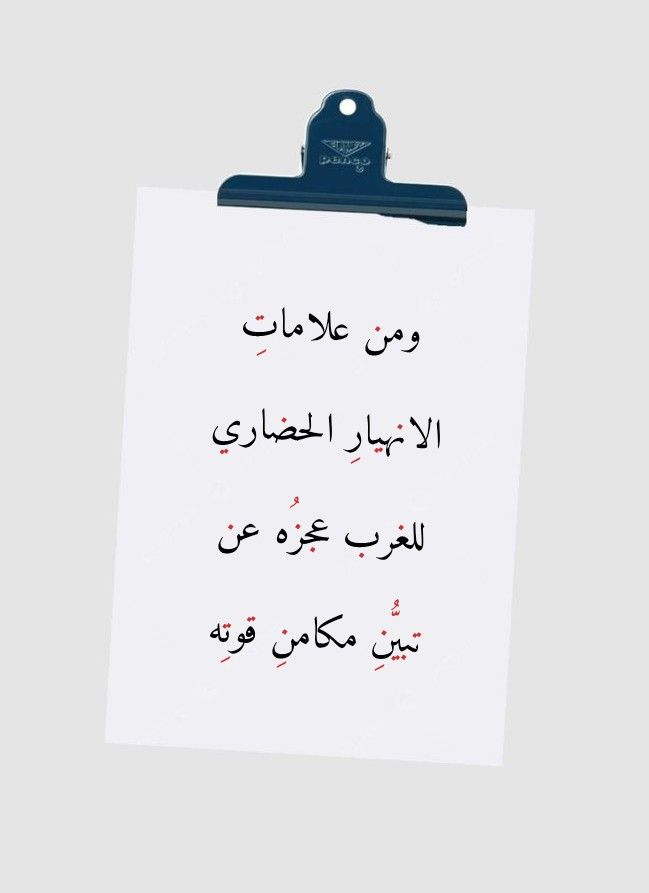 penco
ومن علاماتِ
الانهيارِ الحضاري
للغرب عجزُه عن
تبيُّنِ مكامنِ قوتِه